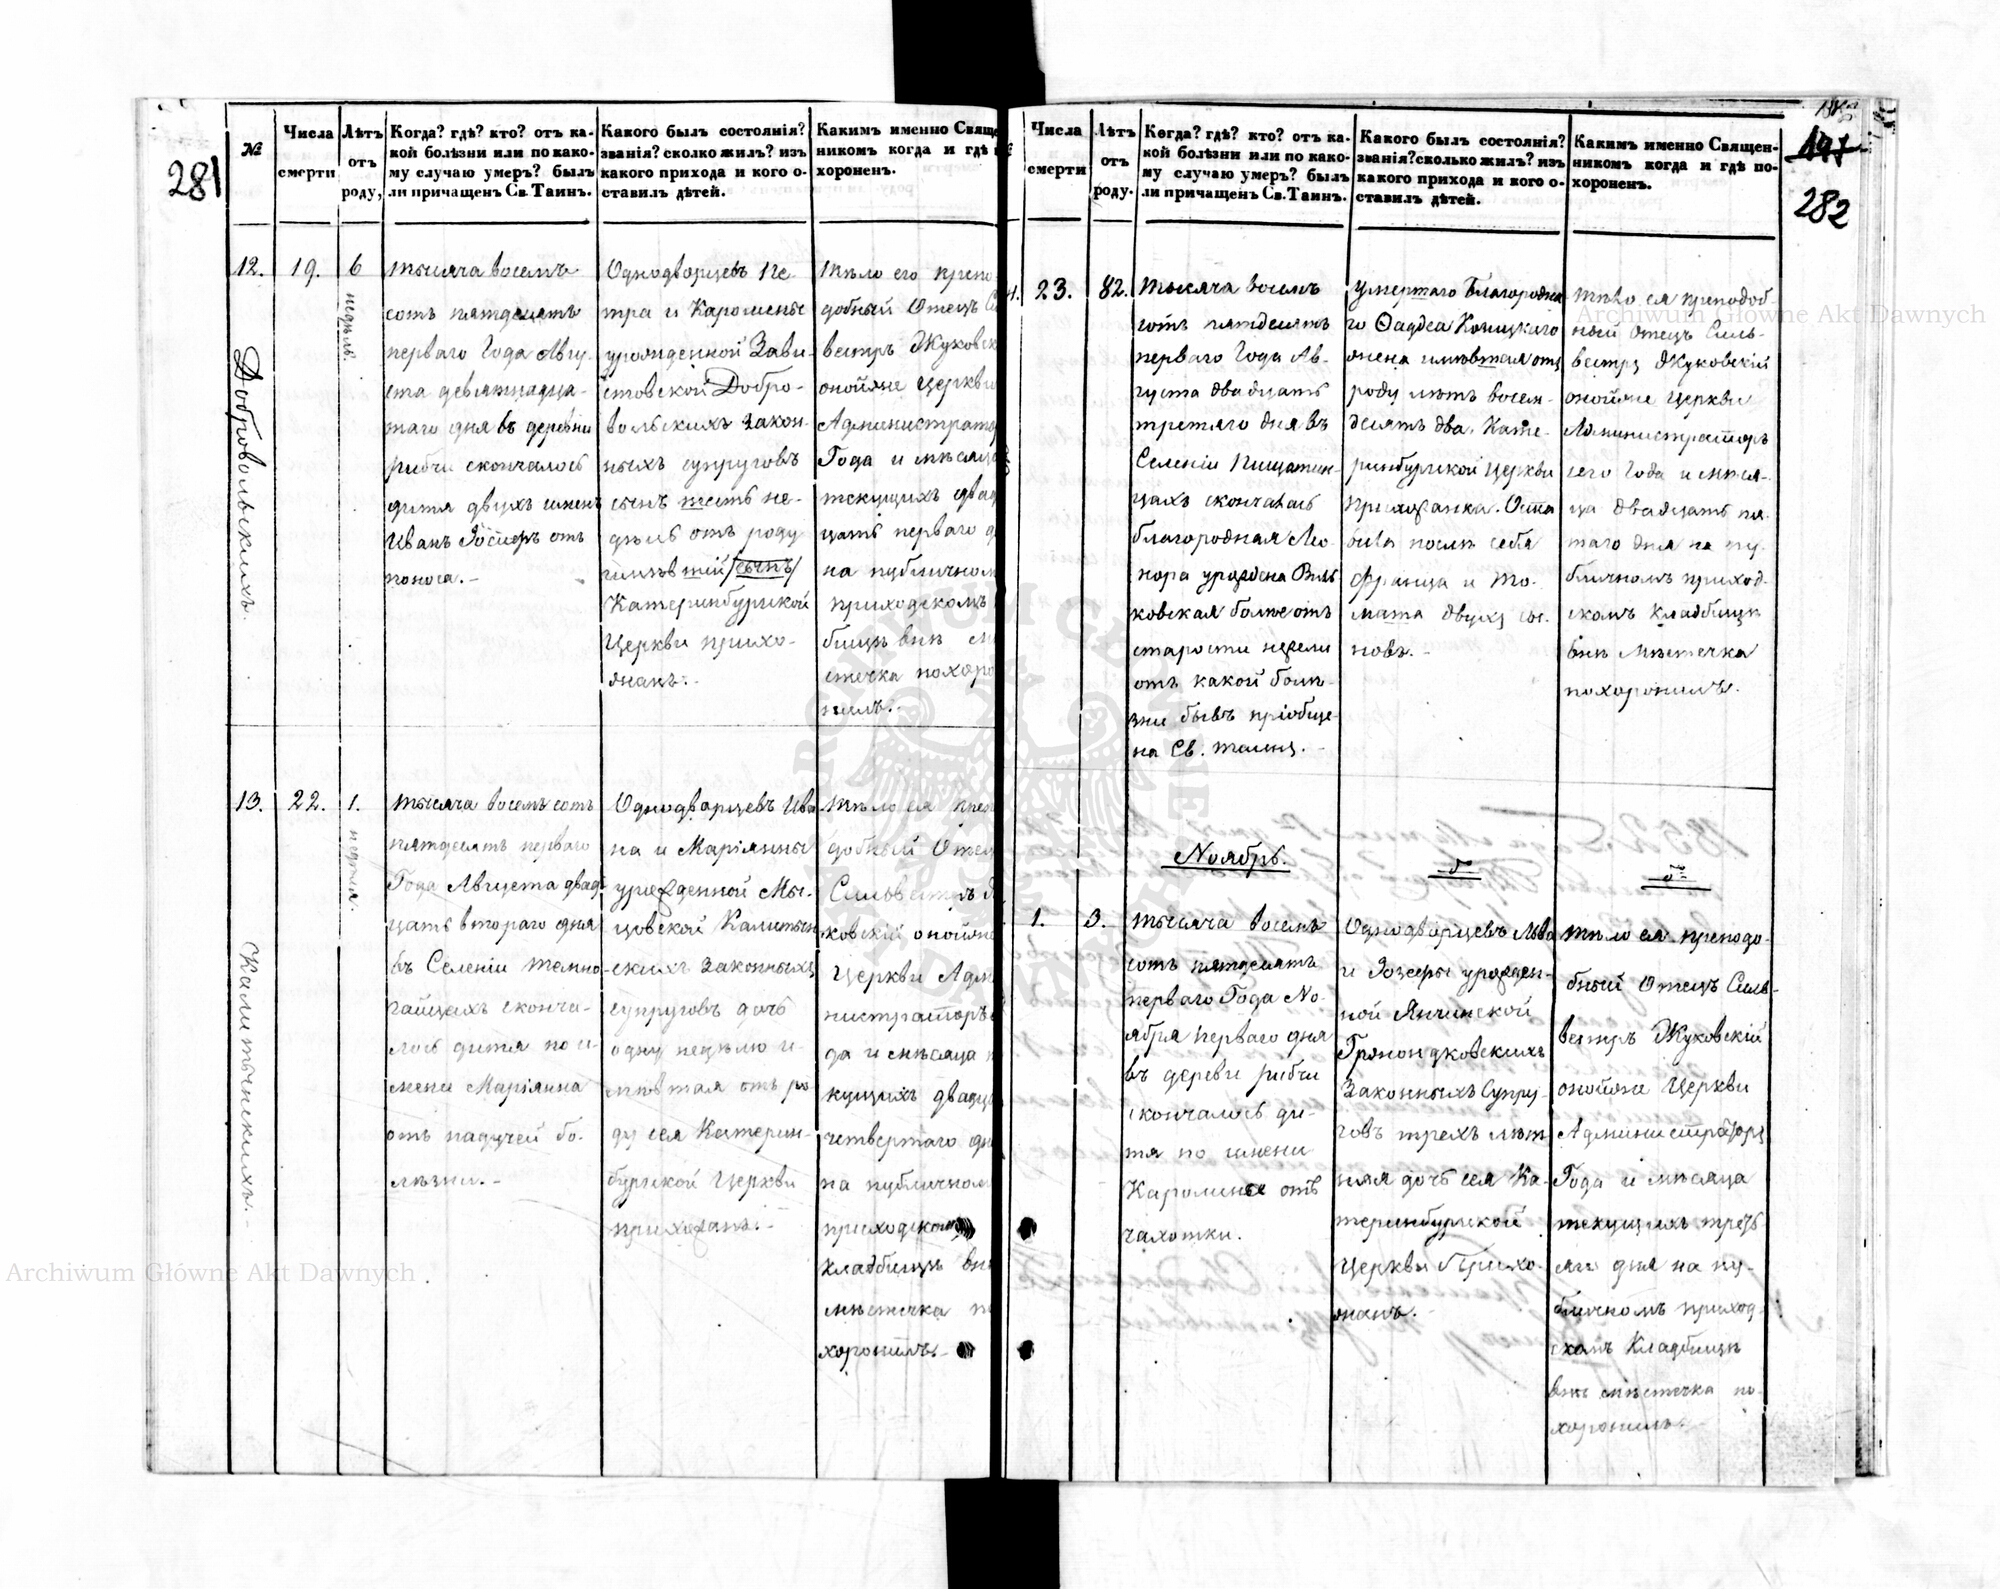 281
№
Числа
смерти
Лѣтъ
отъ
роду,
Когда? гдѣ? кто? отъ ка-
кой болѣзни или по како-
му случаю умеръ? былъ
ли причащенъ Св. Таинъ.
Какого былъ состоянія?
званія? сколко жилъ? изъ
какого прихода и кого о-
ставилъ дѣтей.
Какимъ именно Свяще
никомъ когда и гдѣ
хороненъ.
12.
Добровольскихъ.
19.
6
недѣль.
тысяча восемъ
сотъ пятдесятъ
перваго Года Авгу
ста девятнадца-
таго дня въ деревни
рибчи скончалось
дитя двухъ именъ
Иванъ Іосифъ отъ
поноса.-
Однодворцевъ Пе
тра и Каролины
урожденной Зави-
стовской Добро-
вольскихъ закон-
ныхъ супруговъ
сынъ шесть не-
дѣль отъ роду
имѣвшій /сынъ/
Катеринбургской
Церкви прихо-
жанъ.-
тѣло его препо
добный Отецъ С
вестръ Жуковск
онойже Церкви
Администратор
Года и мѣсяца
текущихъ двад
цать перваго д
на публичном
приходскомъ
бищѣ внѣ м
стечка похоро
нилъ.-
13.
Калитынскихъ.-
22.
1.
недѣля.
тысяча восемъ сотъ
пятдесятъ перваго
Года Августа двад
цать втораго дня
въ Селеніи темно
гайцахъ сконча-
лось дитя по и-
мени Маріянна
отъ падучей бо-
лѣзни.-
Однодворцевъ Ива
на и Маріянны
урожденной Мы-
цовской Калитын
скихъ Законныхъ
супруговъ дочь
одну недѣлю и-
мѣвшая отъ ро
ду сея Катерин-
бургской Церкви
прихожанъ.-
тѣло ея преп
добный Отец
Сильвестръ Ж
ковскій онойже
Церкви Адми
нистраторъ
да и мѣсяца
кущихъ двадца
четвертаго дн
на публичном
приходском
кладбищѣ внѣ
мѣстечка п
хоронилъ.-
197
282
Числа
смерти
Лѣтъ
отъ
роду.
Когда? гдѣ? кто? отъ ка-
кой болѣзни или по како-
му случаю умеръ? былъ
ли причащенъ Св. Таинъ.
Какого былъ состоянія?
званія? сколько жилъ? изъ
какого прихода и кого о-
ставилъ дѣтей.
Какимъ именно Священ-
никомъ когда и гдѣ по-
хороненъ.
23.
82.
тысяча восемъ
сотъ пятдесятъ
перваго Года Ав-
густа двадцать
третяго дня въ
Селеніи Пищатин-
цахъ скончалась
благородная Лео-
нора урождена Виль
ковская болѣе отъ
старости нежели
отъ какой болѣ-
зни бывъ пріобще-
на Св. таинъ.-
умершаго Благородна
го Фаддеа Коницкаго
жена имѣвшая отъ
роду лѣтъ восем-
десятъ два. Кате-
ринбургской Церкви
прихожанка. Оста
вила послѣ себя
Франца и То-
маша двухъ сы-
новъ.-
тѣло ея преподоб-
ный Отецъ Силь-
вестръ Жуковскій
онойже Церкви
Администраторъ
сего Года и мѣся-
ца двадцать пя-
таго дня на пу-
бличномъ приход-
скомъ кладбищѣ
внѣ мѣстечка
похоронилъ.
Ноябрь.
1.
3.
тысяча восемъ
сотъ пятдесятъ
перваго Года Но-
ября перваго дня
въ дереви рибчи
скончалось ди-
тя по имени
Каролина отъ
чахотки.
Однодворцевъ Льва
и Іозефы урожден-
ной Янчинской
Законныхъ Супру-
говъ трехъ лѣт
няя дочь сея Ка
теринбургской
Церкви Прихо-
жанъ.-
тѣло ея преподо-
бный Отецъ Силь-
вестръ Жуковскій
онойже Церкви
Администраторъ
Года и мѣсяца
текущихъ треть
яго дня на пу-
бличномъ приход-
скомъ Кладбищѣ
внѣ мѣстечка по-
хоронилъ.
Archiwum Główne Akt Dawnych
Archiwum Główne Akt Dawnych
ARCHIWUM GŁÓWNE AKT DAWNYCH